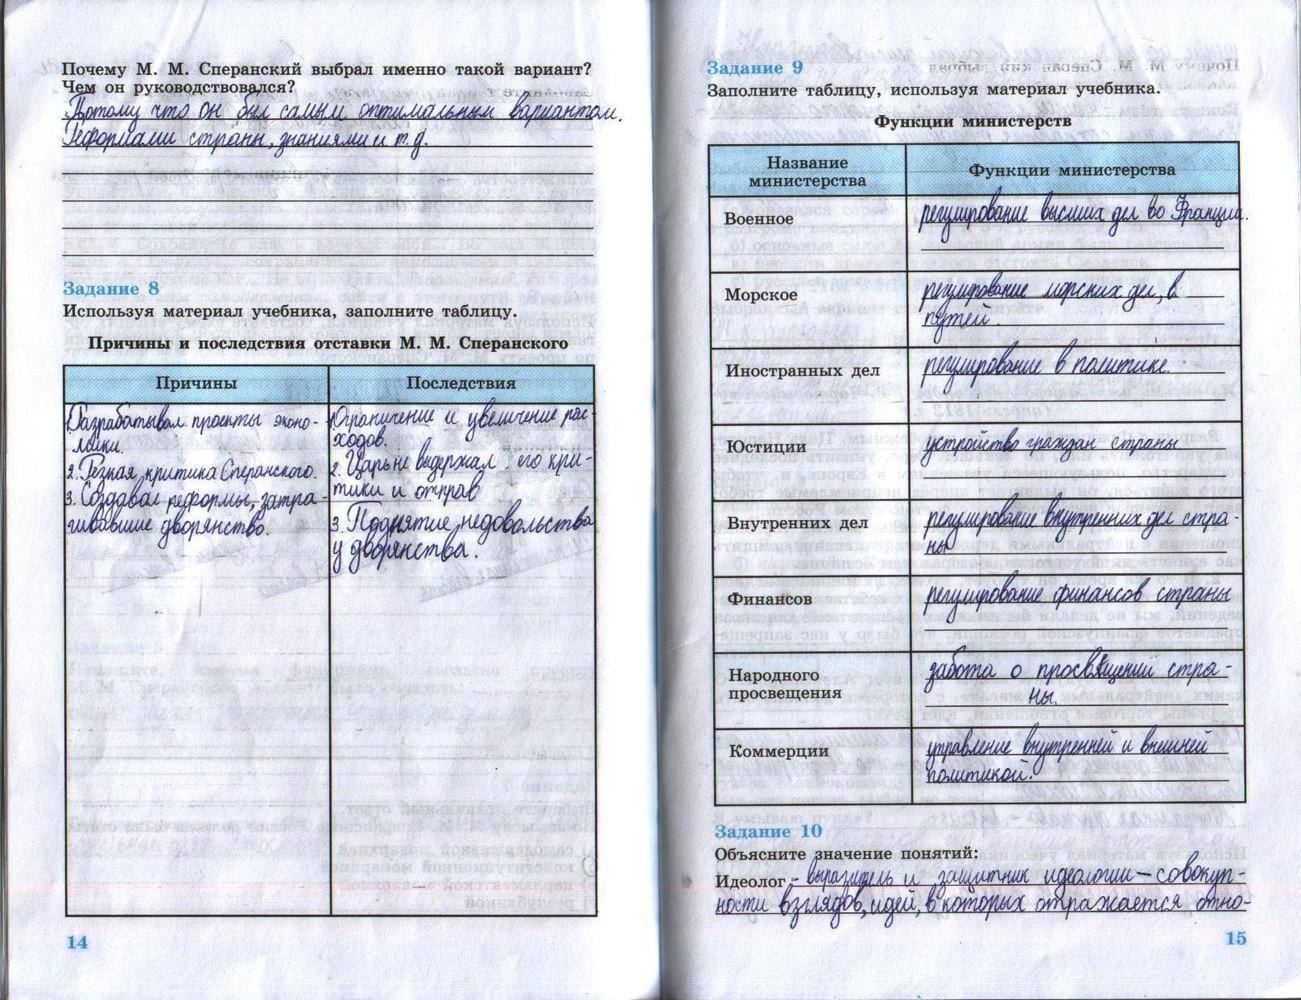 Почему М. М. Сперанский выбрал именно такой вариант?
Чем он руководствовался?
Потому что он был самым оптимальным вариантом.
Реформами страны, знаниями и т.д.
Задание 8
Используя материал учебника, заполните таблицу.
Причины и последствия отставки М. М. Сперанского
Причины
Последствия
1. Разрабатывал проекты эконо-
мики.
2. Резная критика Сперанского.
3. Создавал реформы, затра-
гивавшие дворянство.
1. Ограничение и увеличение рас-
ходов.
2. Царь не выдержал его кри-
тики и отправ
3. Поднятие недовольства
у дворянства.
14
Задание 9
Заполните таблицу, используя материал учебника.
Функции министерств
Название
министерства
Функции министерства
Военное
регулирование высших дел во Франции.
Морское
регулирование морских дел, в
путей.
Иностранных дел
регулирование в политике.
Юстиции
устройство граждан страны
Внутренних дел
регулирование внутренних дел стра-
ны
Финансов
регулирование финансов страны
Народного
просвещения
забота о просвещении стра-
ны.
Коммерции
управление внутренней и внешней
политикой.
Задание 10
Объясните значение понятий:
Идеолог - выразитель и защитник идеологии – совокуп-
ности взглядов, идей, в которых отражается отно-
15